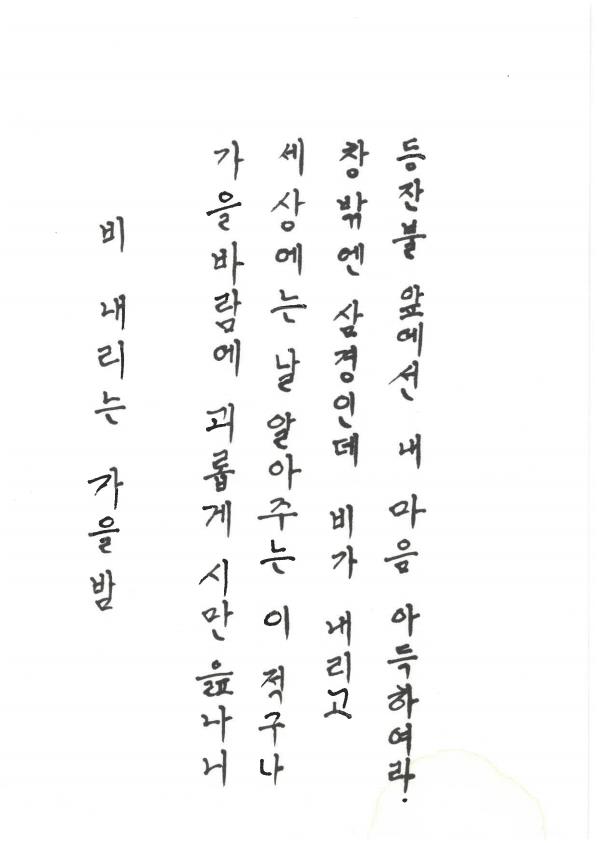 비 내리는 가을밤
가을바람에 괴롭게 시만 읊나니
세상에는 날 알아주는 이 적구나
창밖엔 삼경인데 비가 내리고
등잔불 앞에선 내 마음 아득하여라.